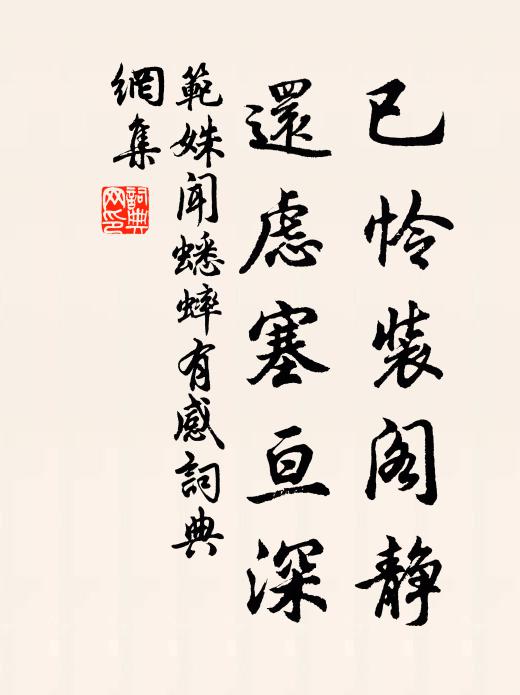 已怜装阁静
還慮塞亘深
範姝闻蟋蟀有感詞典
網集
詞典
网印